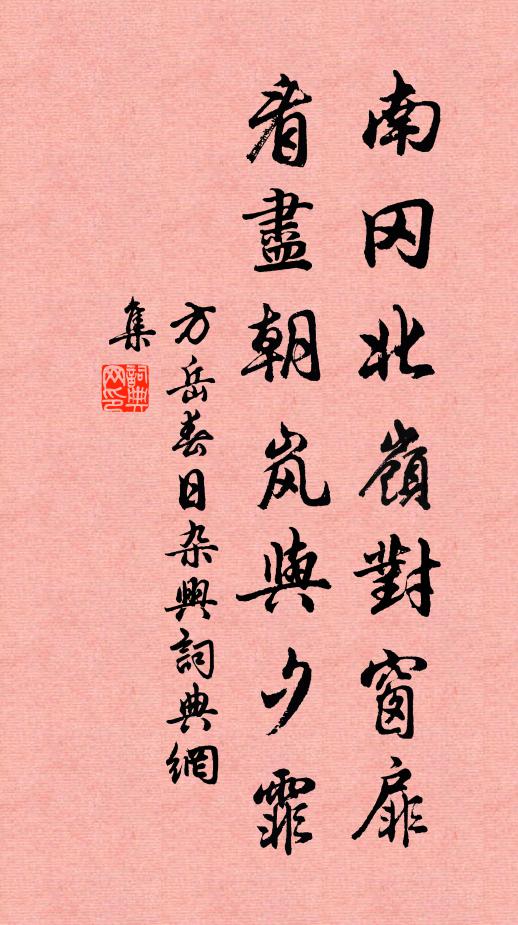 南冈北嶺對窗扉
看盡朝岚與夕霏
方岳春日杂興詞典網
集
詞典网印